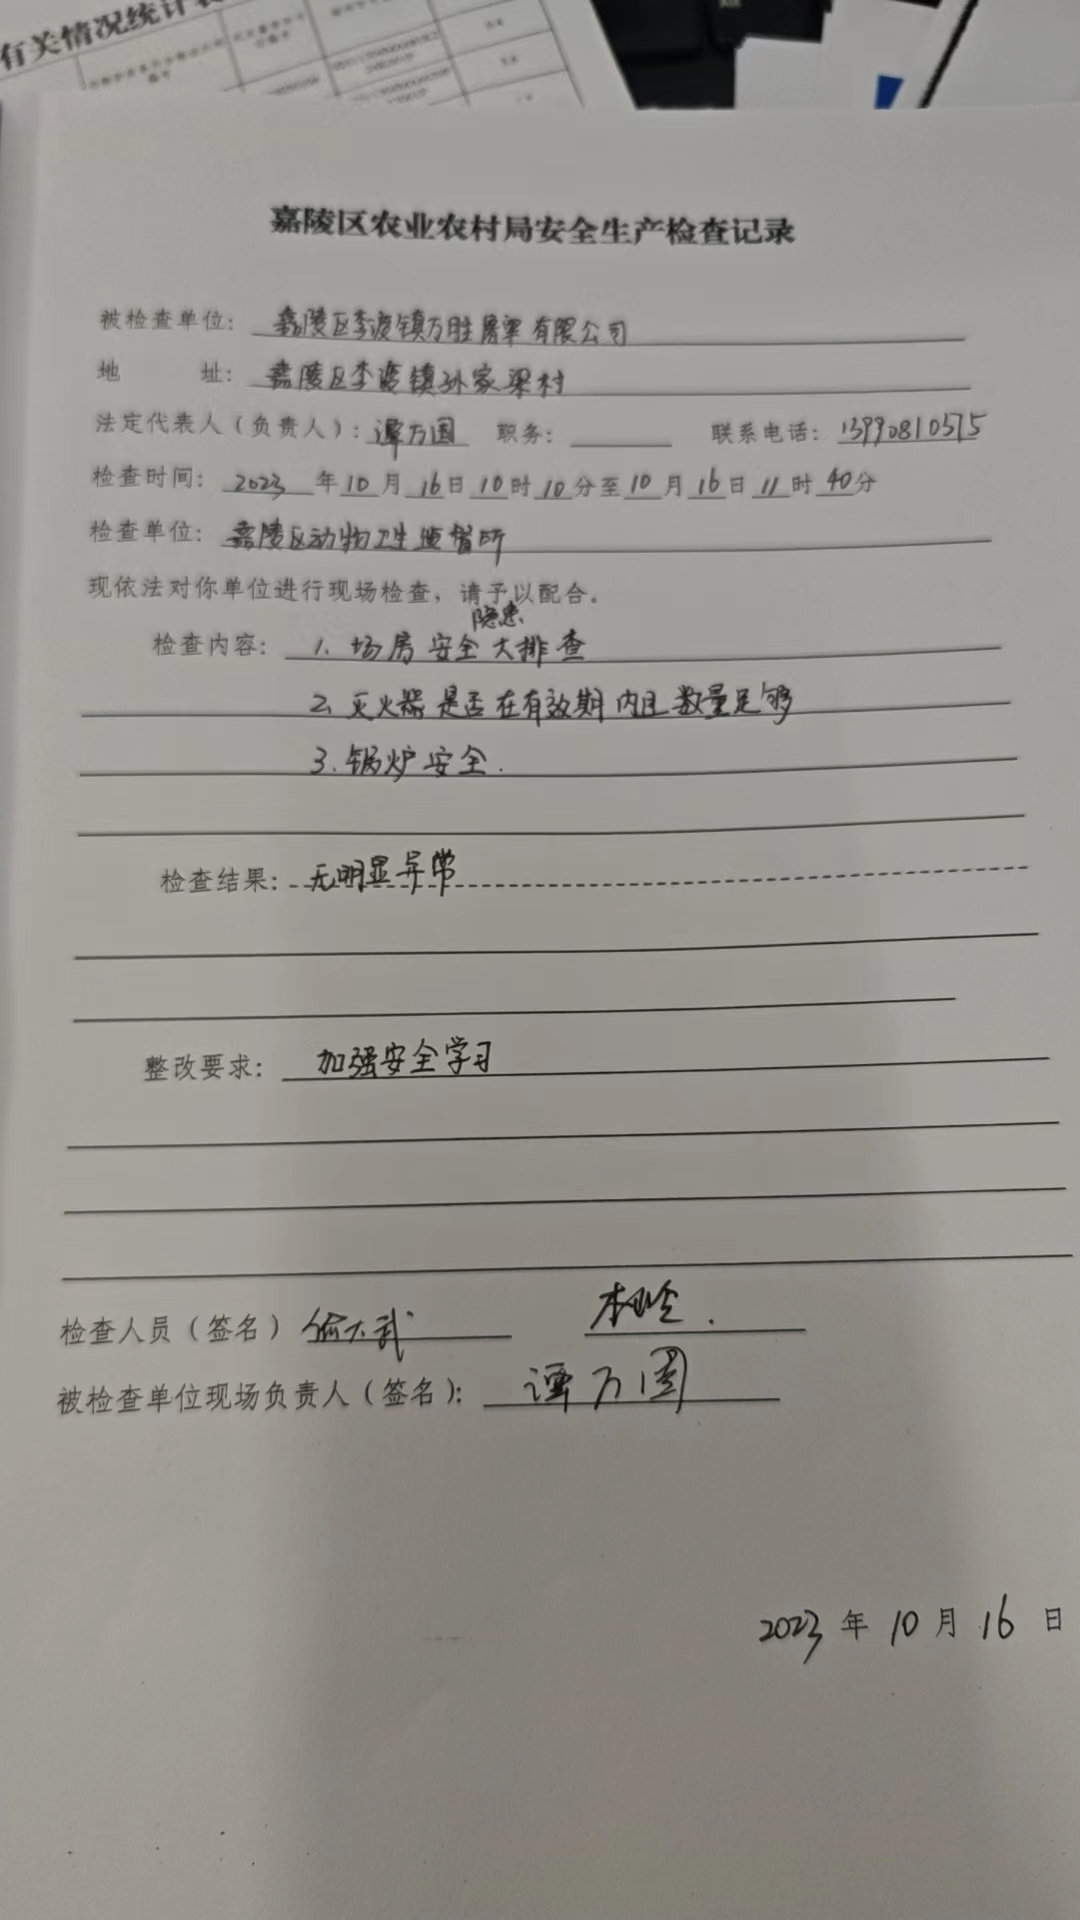 有关情况统计表
嘉陵区农业农村局安全生产检查记录
被检查单位：嘉陵区李渡镇万胜屠宰有限公司
地 址：嘉陵区李渡镇孙家梁村
法定代表人（负责人）：谭万国 职务： 联系电话：13990810575
检查时间：2023年10月16日10时10分至10月16日11时40分
检查单位：嘉陵区动物卫生监督所
现依法对你单位进行现场检查，请予以配合。
隐患
检查内容：1.场房安全大排查
2.灭火器是否在有效期内且数量足够
3.锅炉安全.
检查结果：无明显异常
整改要求：加强安全学习
检查人员（签名）
被检查单位现场负责人（签名）：谭万国
2023年10月16日